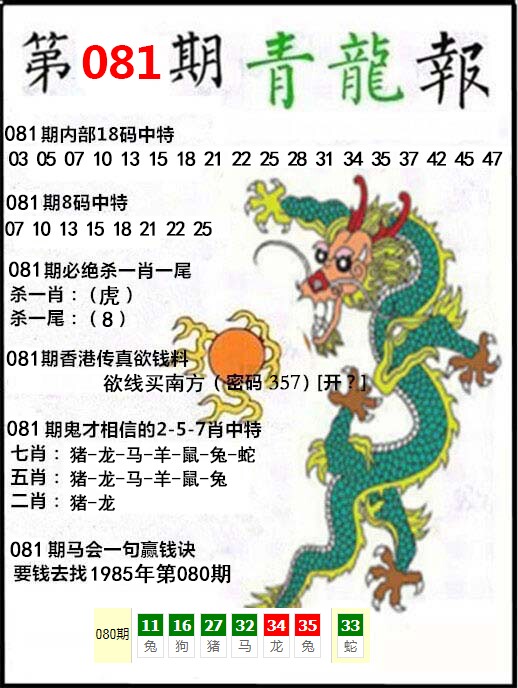 第081期青龍報
081期内部18码中特
03 05 07 10 13 15 18 21 22 25 28 31 34 35 37 42 45 47
081期8码中特
07 10 13 15 18 21 22 25
081期必绝杀一肖一尾
杀一肖：（虎）
杀一尾：（8）
081期香港传真欲钱料
欲线买南方（密码 357）[开？]
081期鬼才相信的2-5-7肖中特
七肖：猪-龙-马-羊-鼠-兔-蛇
五肖：猪-龙-马-羊-鼠-兔
二肖：猪-龙
081期马会一句赢钱诀
要钱去找1985年第080期
080期 11 16 27 32 34 35 33
兔 狗 猪 马 龙 兔 蛇